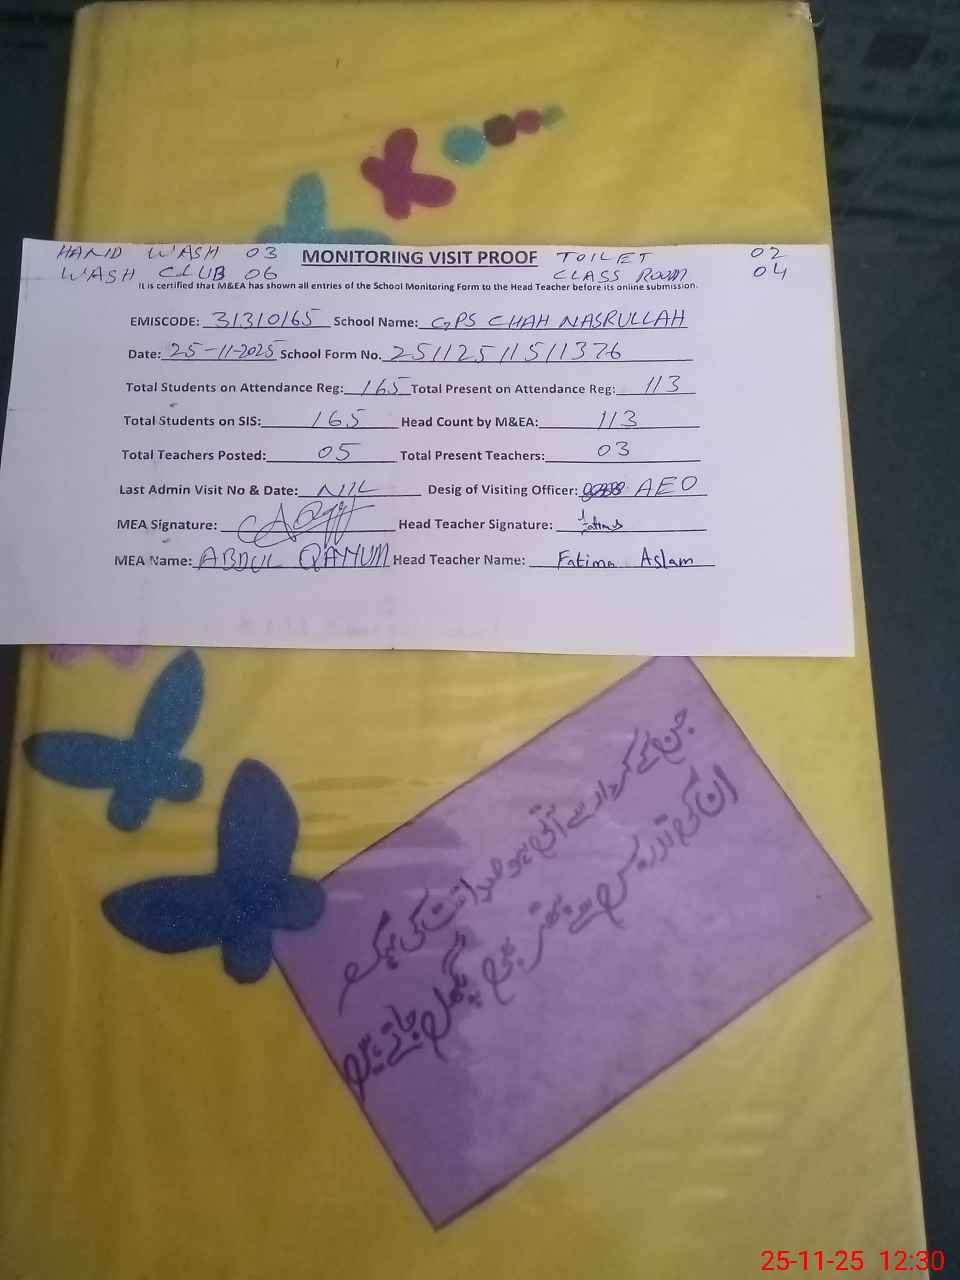 HAND WASH 03 MONITORING VISIT PROOF TOILET 02
WASH CLUB 06 CLASS ROOM 04
It is certified that M&EA has shown all entries of the School Monitoring Form to the Head Teacher before its online submission.
EMISCODE: 31310165 School Name: GPS CHAH NASRULLAH
Date: 25-11-2025 School Form No. 25112511511376
Total Students on Attendance Reg: 165 Total Present on Attendance Reg: 113
Total Students on SIS: 165 Head Count by M&EA: 113
Total Teachers Posted: 05 Total Present Teachers: 03
Last Admin Visit No & Date: NIL Desig of Visiting Officer: AEO
MEA Signature: Head Teacher Signature: Fatima
MEA Name: ABDUL QAYYUM Head Teacher Name: Fatima Aslam
جن کے کردار سے آتی ہو صداقت کی مہک
ان کی تدریس سے پتھر بھی پگھل جاتے ہیں
25-11-25 12:30